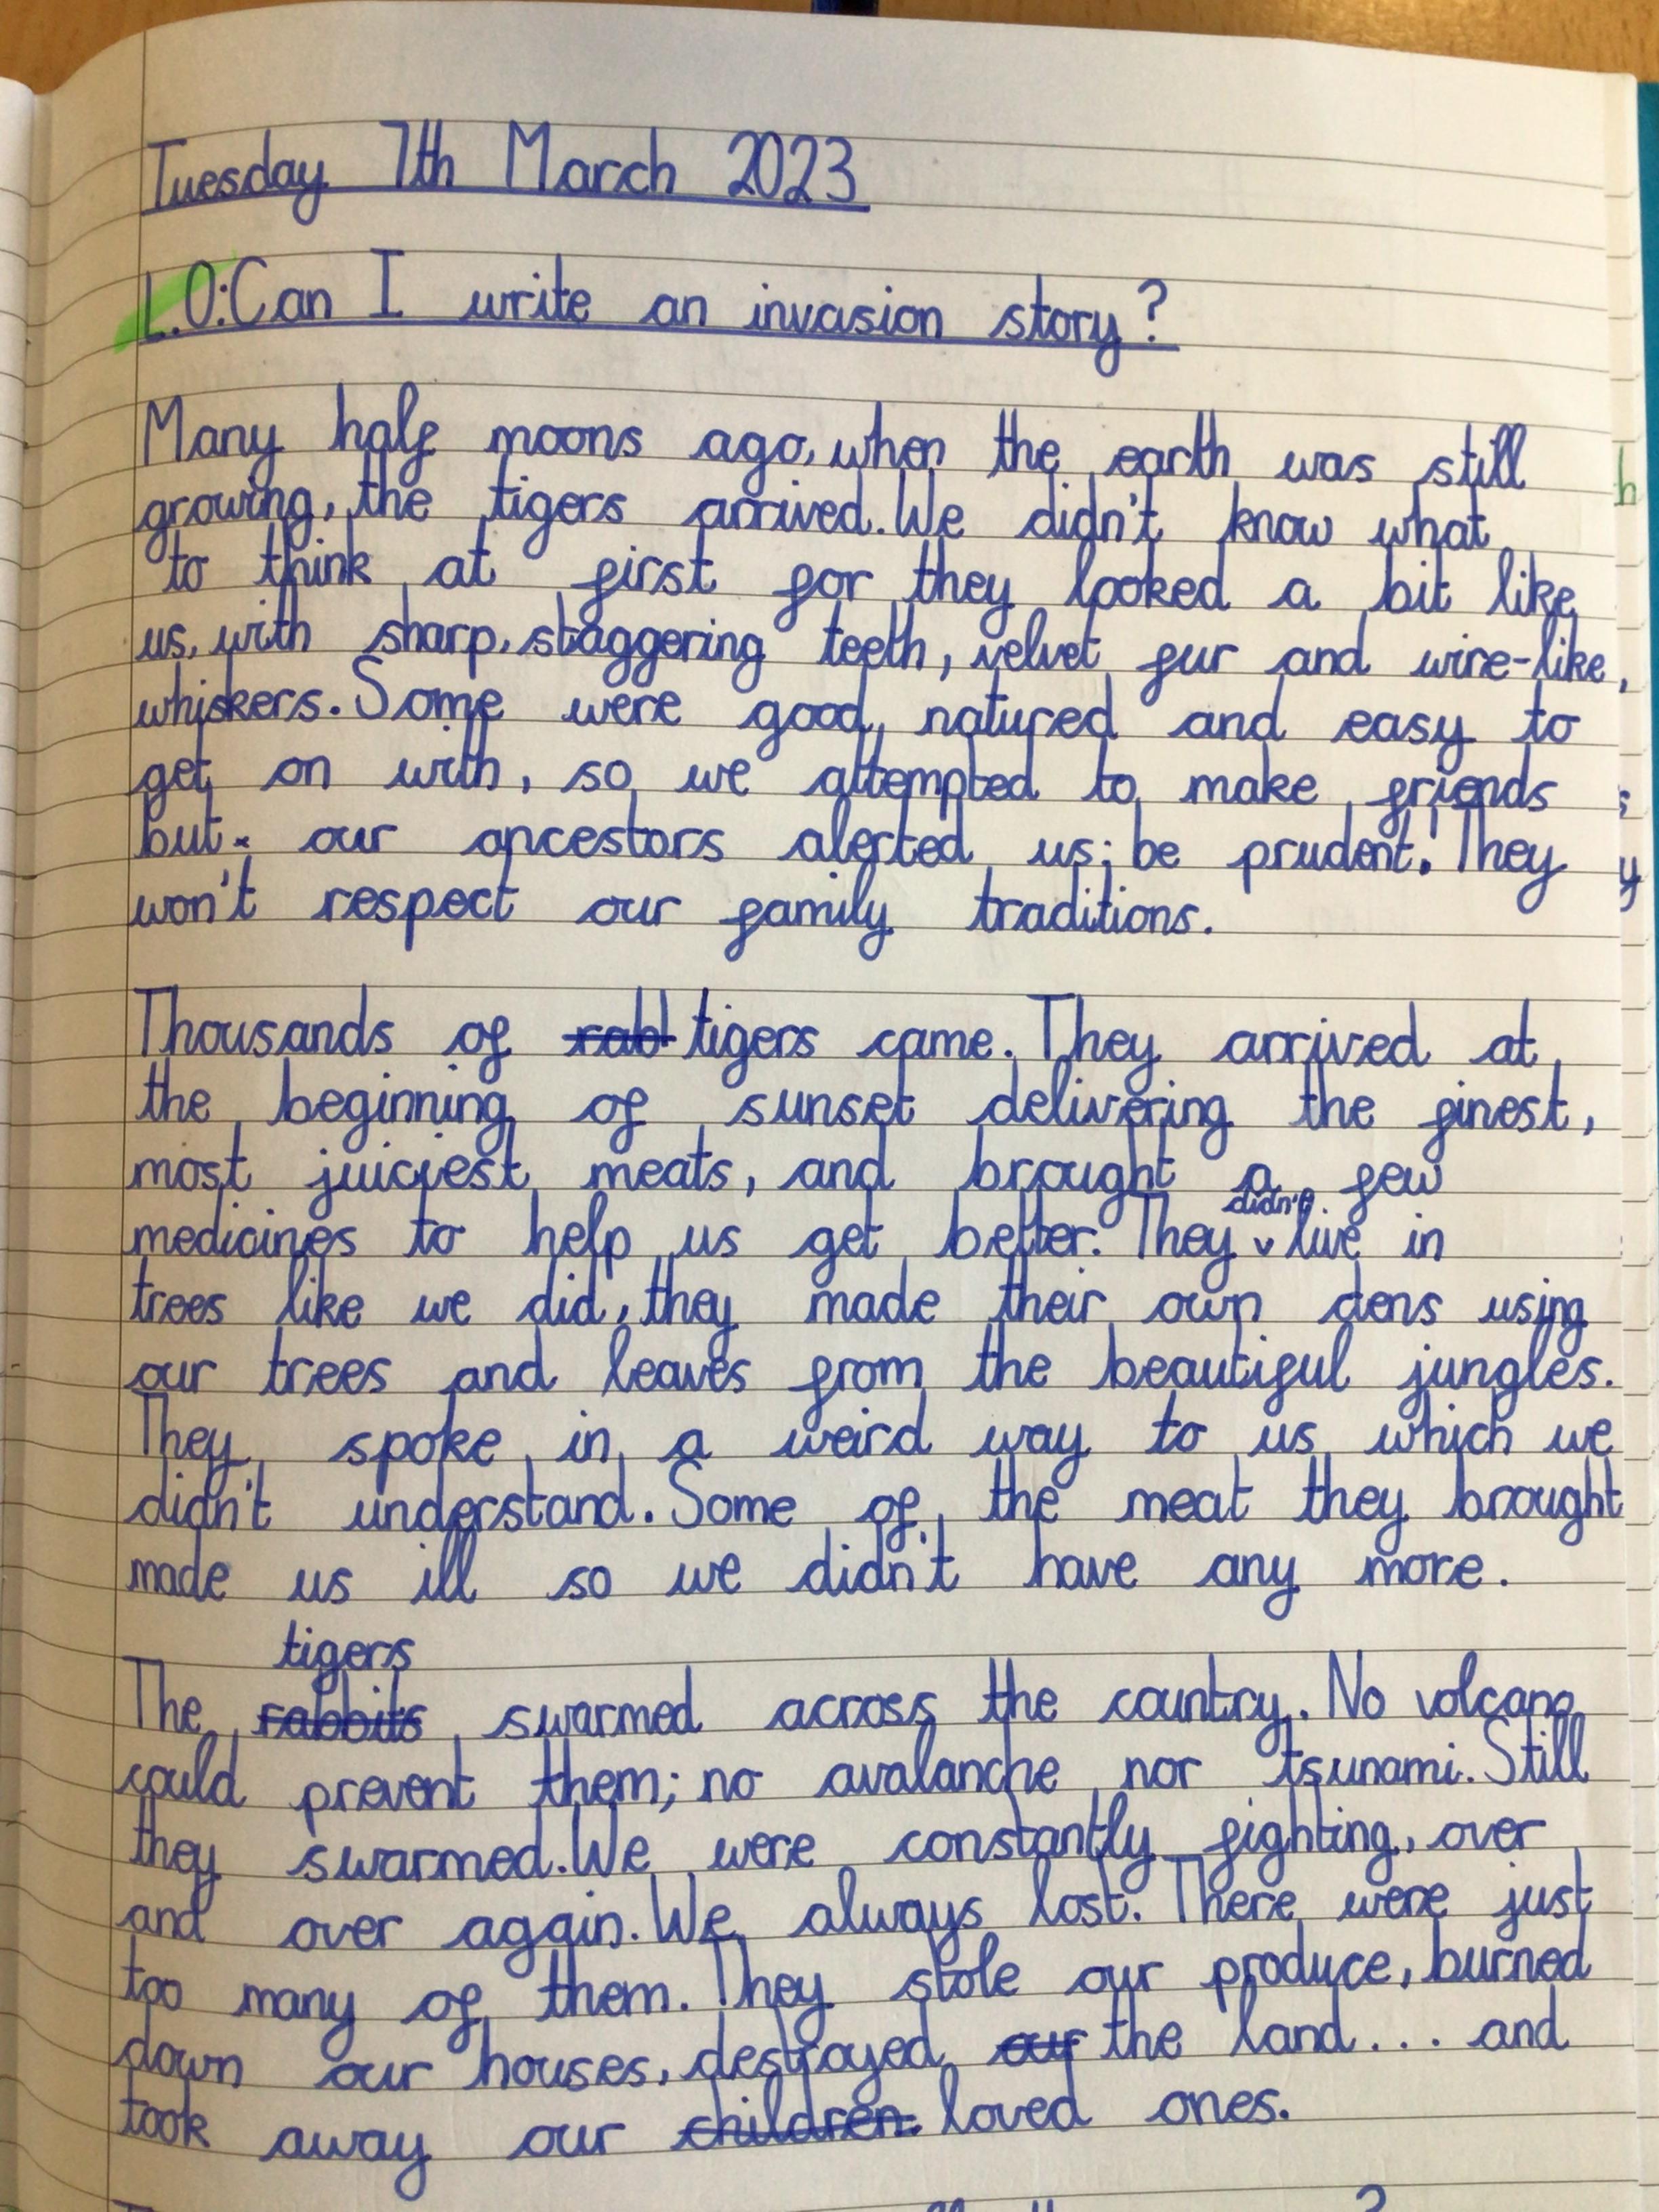 Tuesday 7th March 2023
L.O: Can I write an invasion story?
Many half moons ago, when the earth was still
growing, the tigers arrived. We didn't know what
to think at first for they looked a bit like
us, with sharp, staggering teeth, velvet fur and wire-like
whiskers. Some were good natured and easy to
get on with, so we attempted to make friends
but our ancestors alerted us; be prudent! They
won't respect our family traditions.
Thousands of rabl tigers came. They arrived at
the beginning of sunset delivering the finest,
most juiciest meats, and brought a few
didn't
medicines to help us get better. They live in
trees like we did, they made their own dens using
our trees and leaves from the beautiful jungles.
They spoke in a weird way to us which we
didn't understand. Some of the meat they brought
made us ill so we didn't have any more.
tigers
The rabbits swarmed across the country. No volcano
could prevent them; no avalanche nor tsunami. Still
they swarmed. We were constantly fighting, over
and over again. We always lost. There were just
too many of them. They stole our produce, burned
down our houses, destroyed our the land... and
took away our children. loved ones.